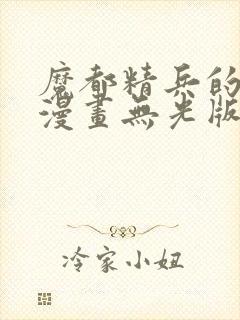 魔都精兵的
漫畫無光版
冷家小妞